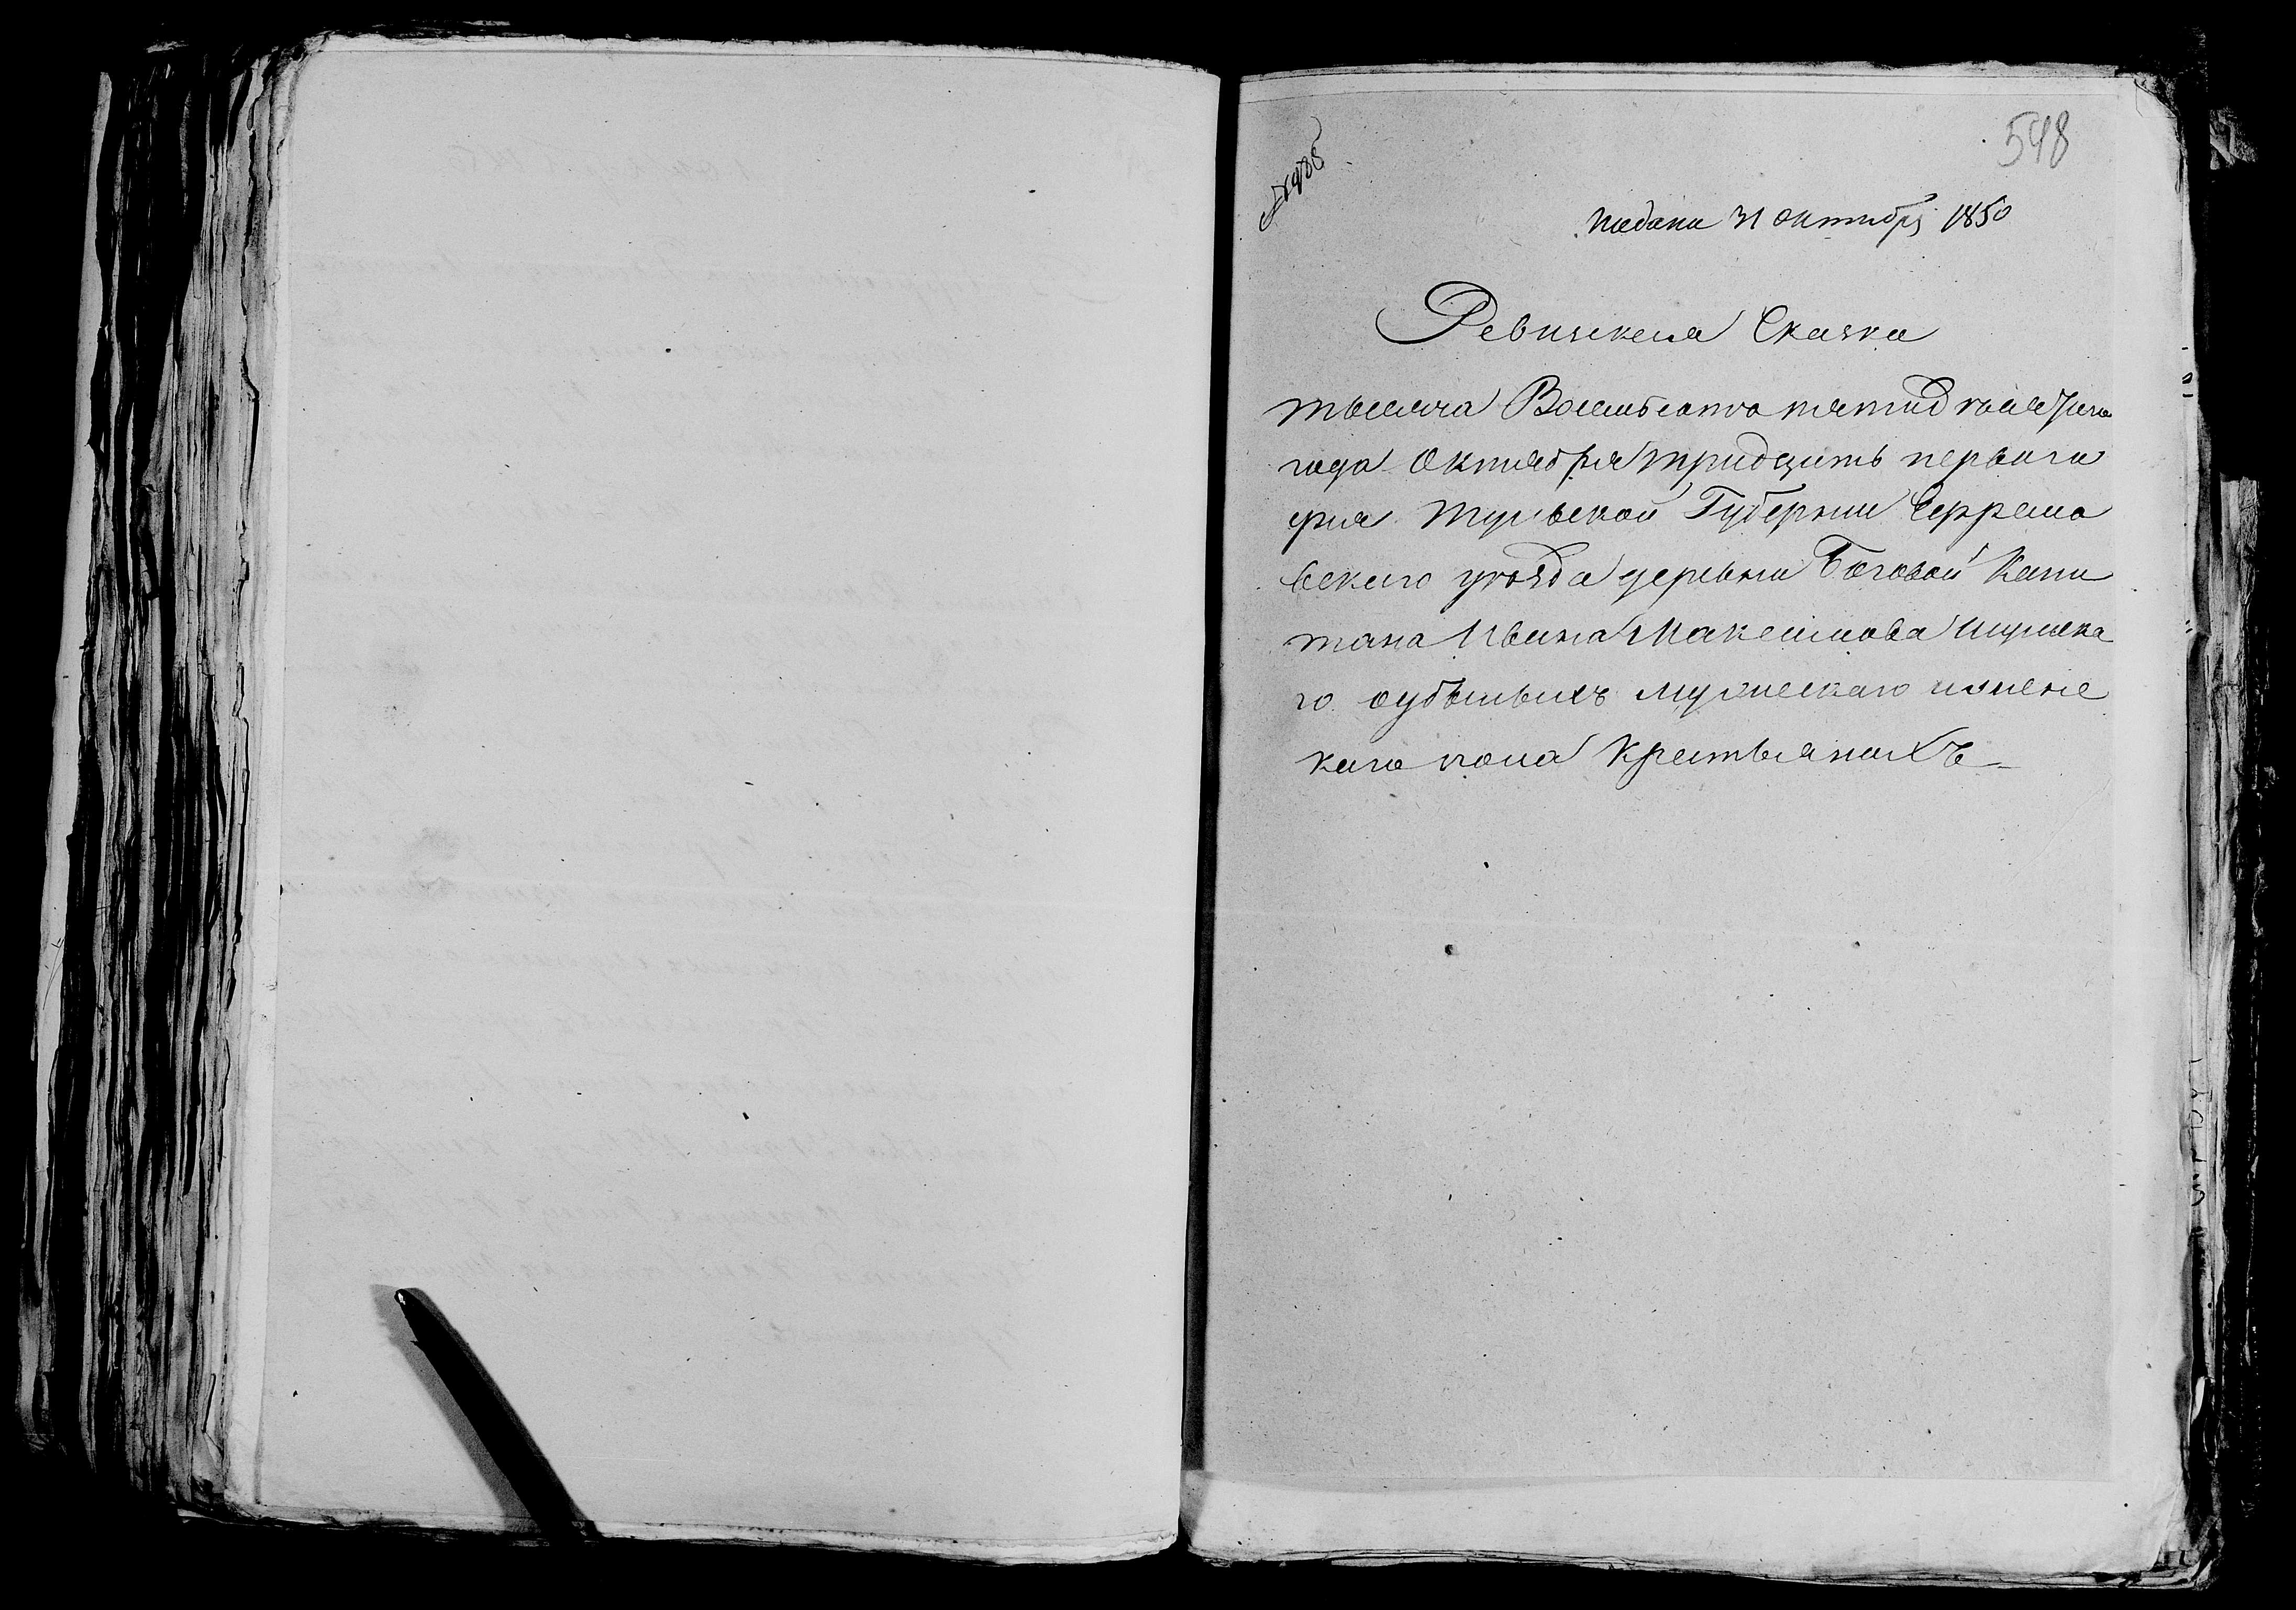 548
подана 31 октября 1850
Ревизская Сказка
тысяча Восемьсотъ пятидесятаго
года Октября тридцать перваго
дня Тульской Губернии Ефремо
вскаго уезда деревни Боговой Капи
тана Ивана Максимова
го оубывшихъ мужескаго иженс
каго пола Крестьянахъ